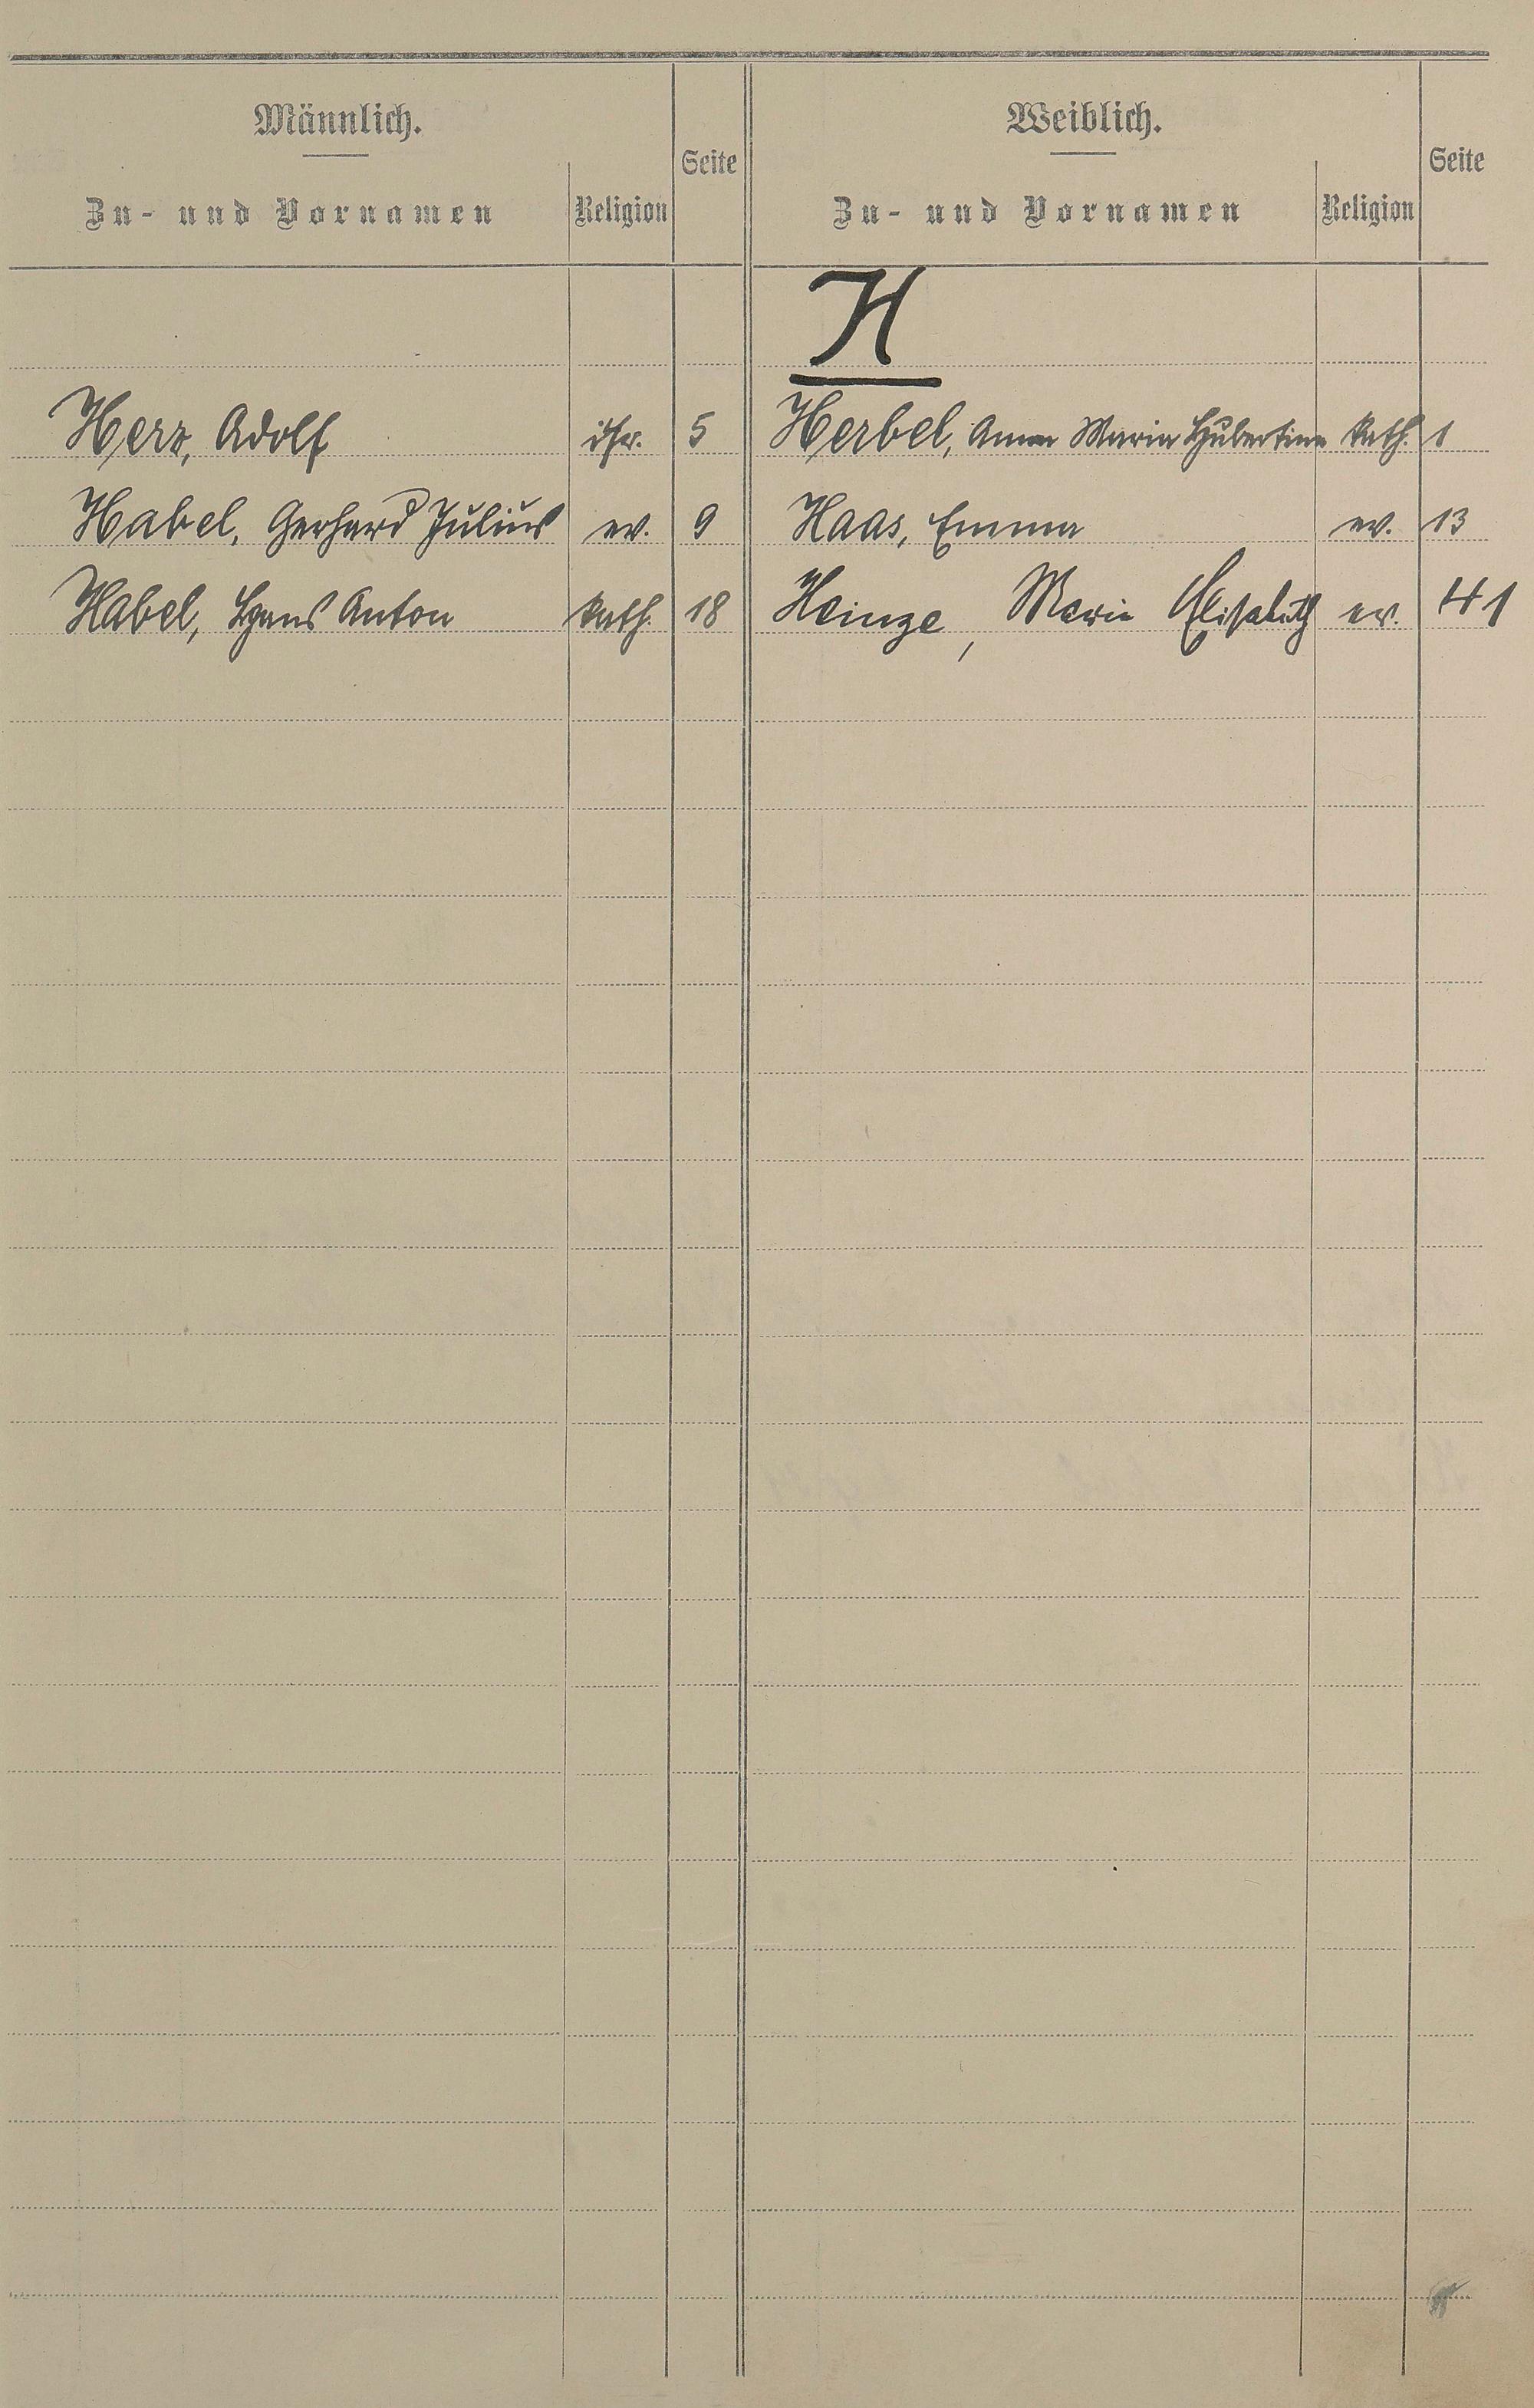 Männlich.
Zu- und Vornamen Religion Seite
Weiblich.
Zu- und Vornamen Religion Seite
H
Herz, Adolf isr. 5 Herbel, Anna Maria Hubertine kath. 1
Habel, Gerhard Julius ev. 9 Haas, Emma ev. 13
Habel, Hans Anton kath. 18 Heinze, Marie Elisabeth ev. 41